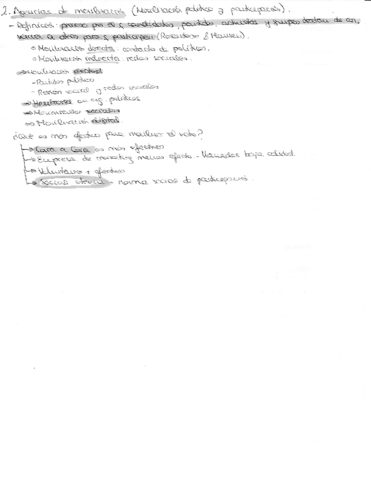 2. Agencias de movilización (Movilización política y participación).
- Definición: proceso por el q candidatos, partidos, activistas y grupos tratan de an
a otros para q participen (Rosenstone & Hansen)
o Movilización directa: contacto de políticos.
o Movilización indirecta: redes sociales.
⇒ Movilización electoral
- Partidos políticos
- Presión social y redes sociales
⇒ en org. políticas
⇒ Movimientos sociales
⇒ Movilización digital
¿Qué es más efectivo para movilizar el voto?
→ Cara a cara es más efectivo
→ Empresa de marketing menos efecto - llamadas baja calidad.
→ Voluntarios + efectivo
→ Presión social → normas sociales de participación.